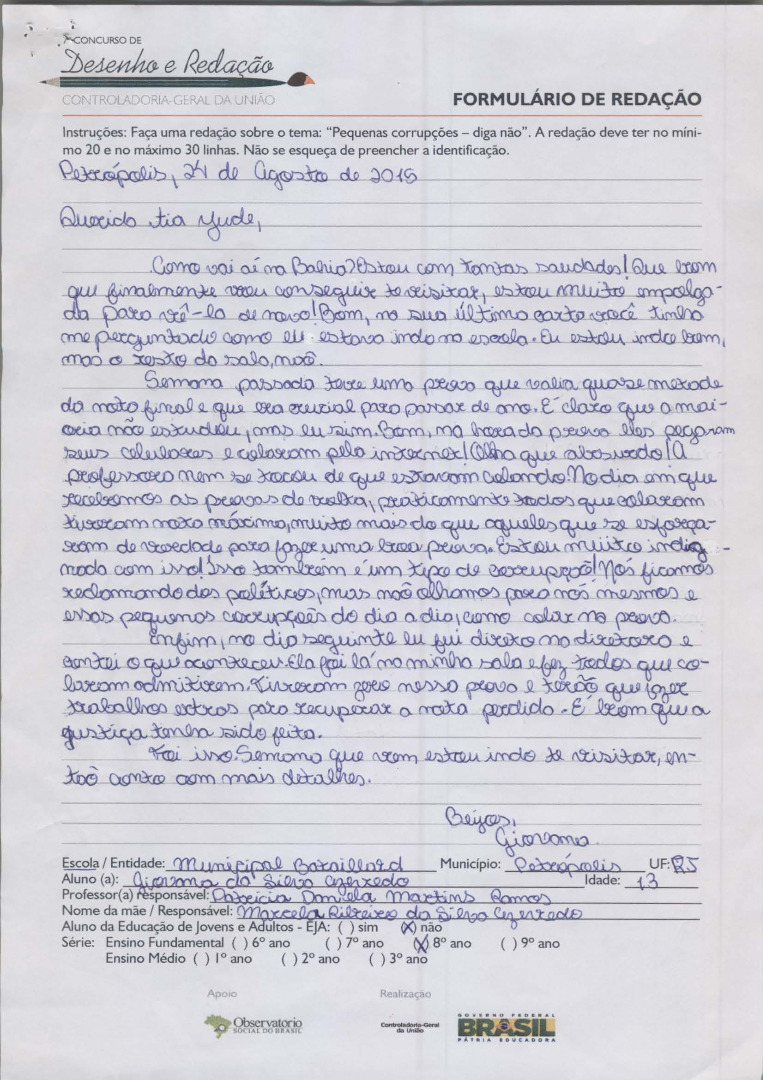 7º CONCURSO DE
Desenho e Redação
CONTROLADORIA-GERAL DA UNIÃO
FORMULÁRIO DE REDAÇÃO
Instruções: Faça uma redação sobre o tema: “Pequenas corrupções – diga não”. A redação deve ter no míni-
mo 20 e no máximo 30 linhas. Não se esqueça de preencher a identificação.
Petrópolis, 24 de Agosto de 2015
Querida tia Jude,
Como vai aí na Bahia? Estou com tantas saudades! Que bom
que finalmente vou conseguir te visitar, estou muito empolga-
da para vê-la de novo! Bom, na sua última carta você tinha
me perguntado como eu estava indo na escola. Eu estou indo bem,
mas o resto da sala, não.
Semana passada teve uma prova que valia quase metade
da nota final e que era crucial para passar de ano. É claro que a mai-
oria não estudou, mas eu sim. Bom, na hora da prova eles pegaram
seus celulares e colaram pela internet! Olha que absurdo! A
professora nem se tocou de que estavam colando! No dia em que
recebemos as provas de volta, praticamente todos que colaram
tiraram nota máxima, muito mais do que aqueles que se esforça-
ram de verdade para fazer uma boa prova. Estou muito indig-
nada com isso! Isso também é um tipo de corrupção! Nós ficamos
reclamando dos políticos, mas não olhamos para nós mesmos e
essas pequenas corrupções do dia a dia, como colar na prova.
Enfim, no dia seguinte eu fui direto na diretora e
contei o que aconteceu. Ela foi lá na minha sala e fez todos que co-
laram admitirem. Tiveram zero nessa prova e terão que fazer
trabalhos extras para recuperar a nota perdida. É bom que a
justiça tenha sido feita.
Foi isso. Semana que vem estou indo te visitar, en-
tão conto com mais detalhes.
Beijos,
Giovana.
Escola / Entidade: Municipal Bataillard Município: Petrópolis UF: RJ
Aluno (a): Giovana da Silva Azeredo Idade: 13
Professor(a) responsável: Patricia Daniela Martins Ramos
Nome da mãe / Responsável: Marcela Ribeiro da Silva Azeredo
Aluno da Educação de Jovens e Adultos - EJA: ( ) sim (X) não
Série: Ensino Fundamental ( ) 6º ano ( ) 7º ano (X) 8º ano ( ) 9º ano
Ensino Médio ( ) 1º ano ( ) 2º ano ( ) 3º ano
Apoio Realização
Observatório
SOCIAL DO BRASIL
Controladoria-Geral
da União
GOVERNO FEDERAL
BRASIL
PÁTRIA EDUCADORA